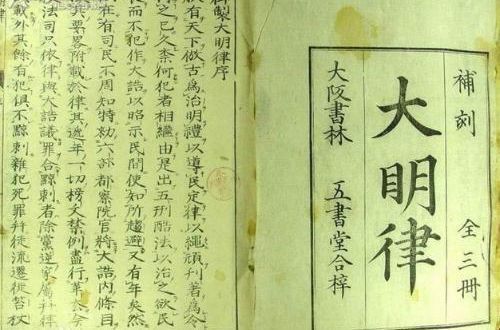 補刻 全三冊
大明律
大阪書林 五書堂合梓
御製大明律序
有天下倣古為治明禮以導民定律以繩頑刊著為令
之已久奈何犯者相繼由是出五刑酷法以治之欲民
而不犯作大誥以昭示民間使知所趨避又有年矣然
在有司民不周知特敕六部都察院官將大誥内條目
其要畧附載於律其遞年一切榜文禁例盡行革去今
法司只依律與大誥議罪合黥刺者除黨逆家属并律
載外其餘有犯俱不黥刺雜犯死罪并徒流遷徙笞杖